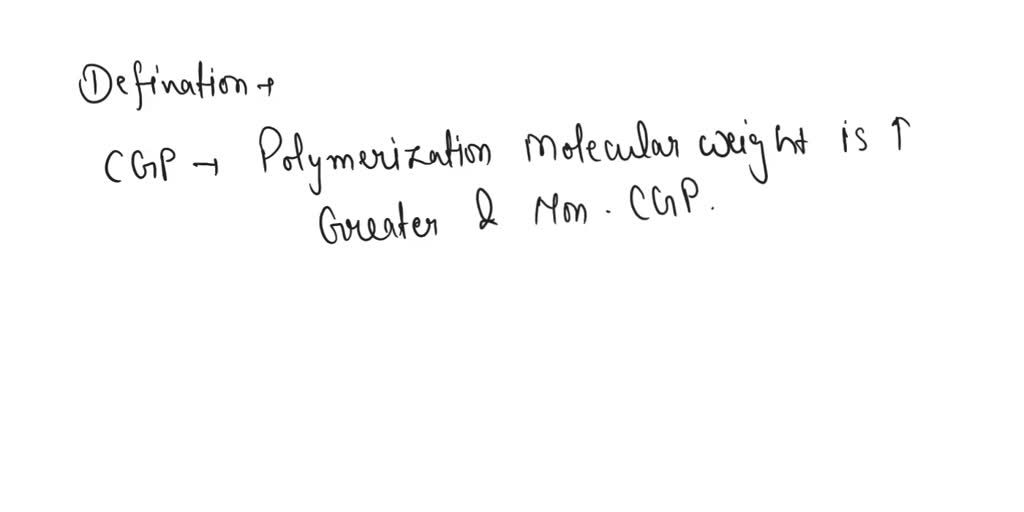 ① Defination →
CGP → Polymerization Molecular weight is ↑
Greater & Non. CGP.